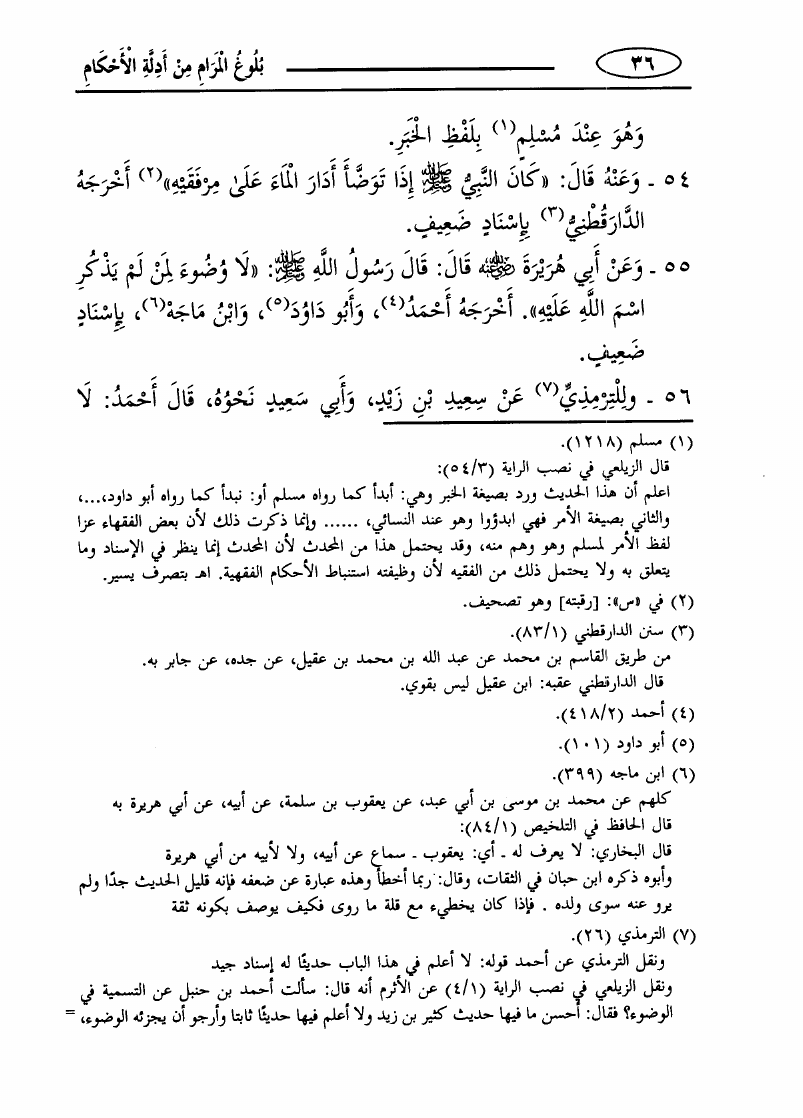 ٣٦ بُلُوغُ الْمَرَامِ مِنْ أَدِلَّةِ الْأَحْكَامِ
وَهُوَ عِنْدَ مُسْلِمٍ(١) بِلَفْظِ الْخَبَرِ.
٥٤ ـ وَعَنْهُ قَالَ: «كَانَ النَّبِيُّ ﷺ إِذَا تَوَضَّأَ أَدَارَ الْمَاءَ عَلَىٰ مِرْفَقَيْهِ»(٢) أَخْرَجَهُ
الدَّارَقُطْنِيُّ(٣) بِإِسْنَادٍ ضَعِيفٍ.
٥٥ ـ وَعَنْ أَبِي هُرَيْرَةَ رضي الله عنه قَالَ: قَالَ رَسُولُ اللَّهِ ﷺ: «لَا وُضُوءَ لِمَنْ لَمْ يَذْكُرِ
اسْمَ اللَّهِ عَلَيْهِ». أَخْرَجَهُ أَحْمَدُ(٤)، وَأَبُو دَاوُدَ(٥)، وَابْنُ مَاجَهْ(٦)، بِإِسْنَادٍ
ضَعِيفٍ.
٥٦ ـ ولِلْتِرْمِذِيِّ(٧) عَنْ سِعِيدِ بْنِ زَيْدٍ، وَأَبِي سَعِيدٍ نَحْوُهُ، قَالَ أَحْمَدُ: لَا
(١) مسلم (١٢١٨).
قال الزيلعي في نصب الراية (٥٤/٣):
اعلم أن هذا الحديث ورد بصيغة الخبر وهي: أبدأ كما رواه مسلم أو: نبدأ كما رواه أبو داود،...،
والثاني بصيغة الأمر فهي ابدؤوا وهو عند النسائي، ...... وإنما ذكرت ذلك لأن بعض الفقهاء عزا
لفظ الأمر لمسلم وهو وهم منه، وقد يحتمل هذا من المحدث لأن المحدث إنما ينظر في الإسناد وما
يتعلق به ولا يحتمل ذلك من الفقيه لأن وظيفته استنباط الأحكام الفقهية. اهـ بتصرف يسير.
(٢) في «س»: [رقبته] وهو تصحيف.
(٣) سنن الدارقطني (٨٣/١).
من طريق القاسم بن محمد عن عبد الله بن محمد بن عقيل، عن جده، عن جابر به.
قال الدارقطني عقبه: ابن عقيل ليس بقوي.
(٤) أحمد (٤١٨/٢).
(٥) أبو داود (١٠١).
(٦) ابن ماجه (٣٩٩).
كلهم عن محمد بن موسى بن أبي عبد، عن يعقوب بن سلمة، عن أبيه، عن أبي هريرة به
قال الحافظ في التلخيص (٨٤/١):
قال البخاري: لا يعرف له ـ أي: يعقوب ـ سماع عن أبيه، ولا لأبيه من أبي هريرة
وأبوه ذكره ابن حبان في الثقات، وقال: ربما أخطأ وهذه عبارة عن ضعفه فإنه قليل الحديث جدًا ولم
يرو عنه سوى ولده . فإذا كان يخطيء مع قلة ما روى فكيف يوصف بكونه ثقة
(٧) الترمذي (٢٦).
ونقل الترمذي عن أحمد قوله: لا أعلم في هذا الباب حديثًا له إسناد جيد
ونقل الزيلعي في نصب الراية (٤/١) عن الأثرم أنه قال: سألت أحمد بن حنبل عن التسمية في
الوضوء؟ فقال: أحسن ما فيها حديث كثير بن زيد ولا أعلم فيها حديثًا ثابتا وأرجو أن يجزئه الوضوء، =